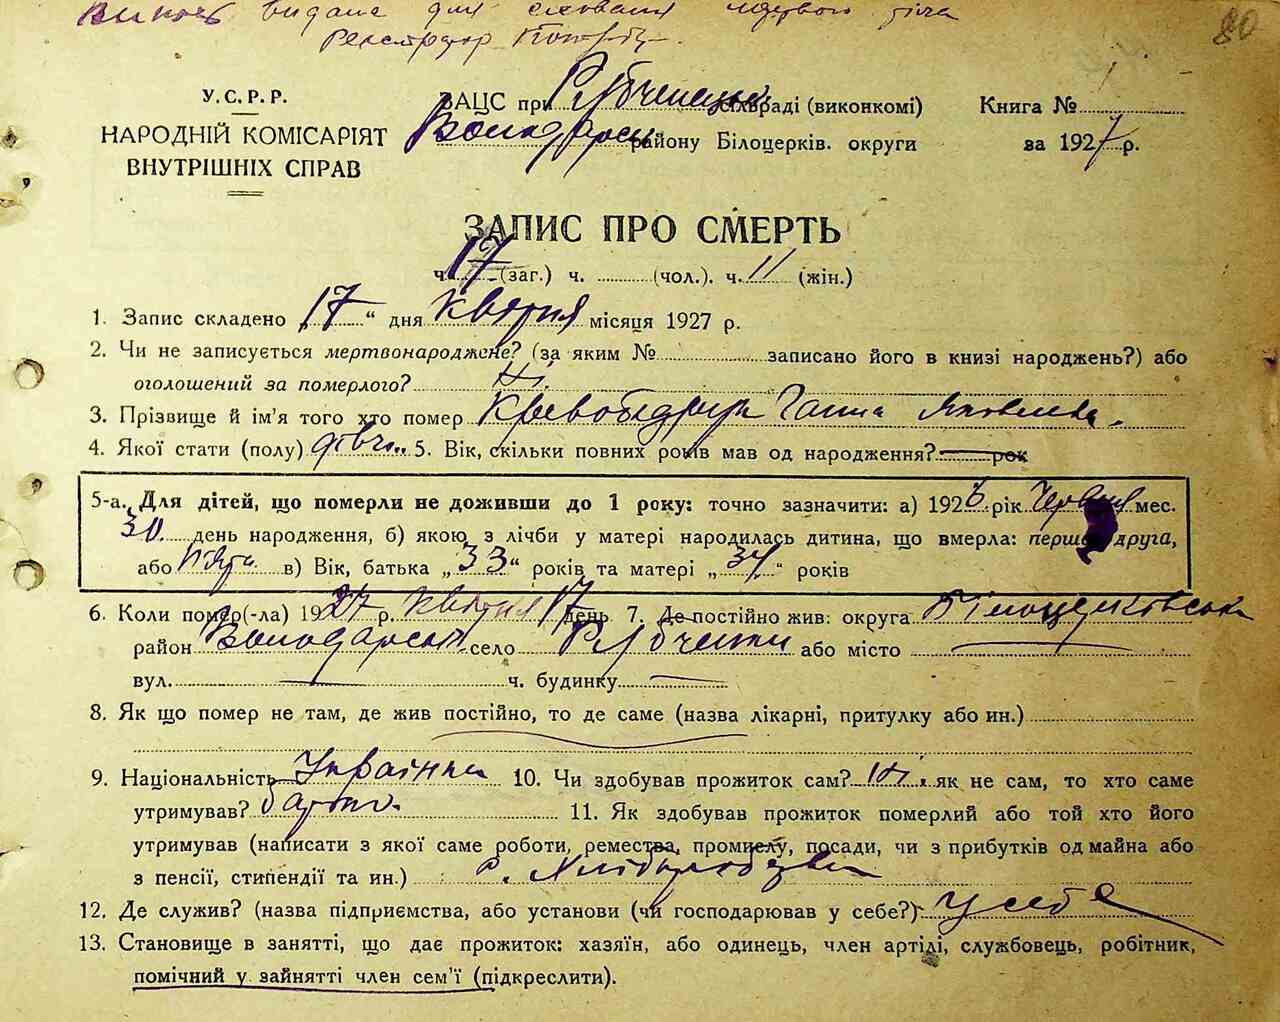 Виписъ видана для сховання мертвого тіла
Реєстратор
80
У.С.Р.Р.
НАРОДНІЙ КОМІСАРІЯТ
ВНУТРІШНІХ СПРАВ
ЗАЦС при Рубченецькій сільраді (виконкомі)
Володарськ. району Білоцерків. округи
Книга №
за 1927 р.
ЗАПИС ПРО СМЕРТЬ
ч. 17 (заг.) ч. (чол.). ч. 11 (жін.)
1. Запис складено „17“ дня квітня місяця 1927 р.
2. Чи не записується мертвонароджене? (за яким № записано його в книзі народжень?) або
оголошений за померлого? Ні.
3. Прізвище й ім'я того хто помер Кривобедра Ганна Яковлівна.
4. Якої стати (полу) дівч.. 5. Вік, скільки повних років мав од народження? рок
5-а. Для дітей, що померли не доживши до 1 року: точно зазначити: а) 1926 рік Червня мес.
30 день народження, б) якою з лічби у матері народилась дитина, що вмерла: перша друга,
або п'ята в) Вік, батька „33“ років та матері „34“ років
6. Коли помер(-ла) 1927 р. квітня 17 день 7. Де постійно жив: округа Білоцерківська
район Володарськ. село Рубченки або місто
вул. ч. будинку
8. Як що помер не там, де жив постійно, то де саме (назва лікарні, притулку або ин.)
9. Національність Українка 10. Чи здобував прожиток сам? Ні. як не сам, то хто саме
утримував? батько. 11. Як здобував прожиток померлий або той хто його
утримував (написати з якої саме роботи, ремества, промислу, посади, чи з прибутків од майна або
з пенсії, стипендії та ин.) з Хліборобства
12. Де служив? (назва підприємства, або установи (чи господарював у себе?) у себе
13. Становище в занятті, що дає прожиток: хазяїн, або одинець, член артілі, службовець, робітник,
помічний у зайнятті член сем'ї (підкреслити).